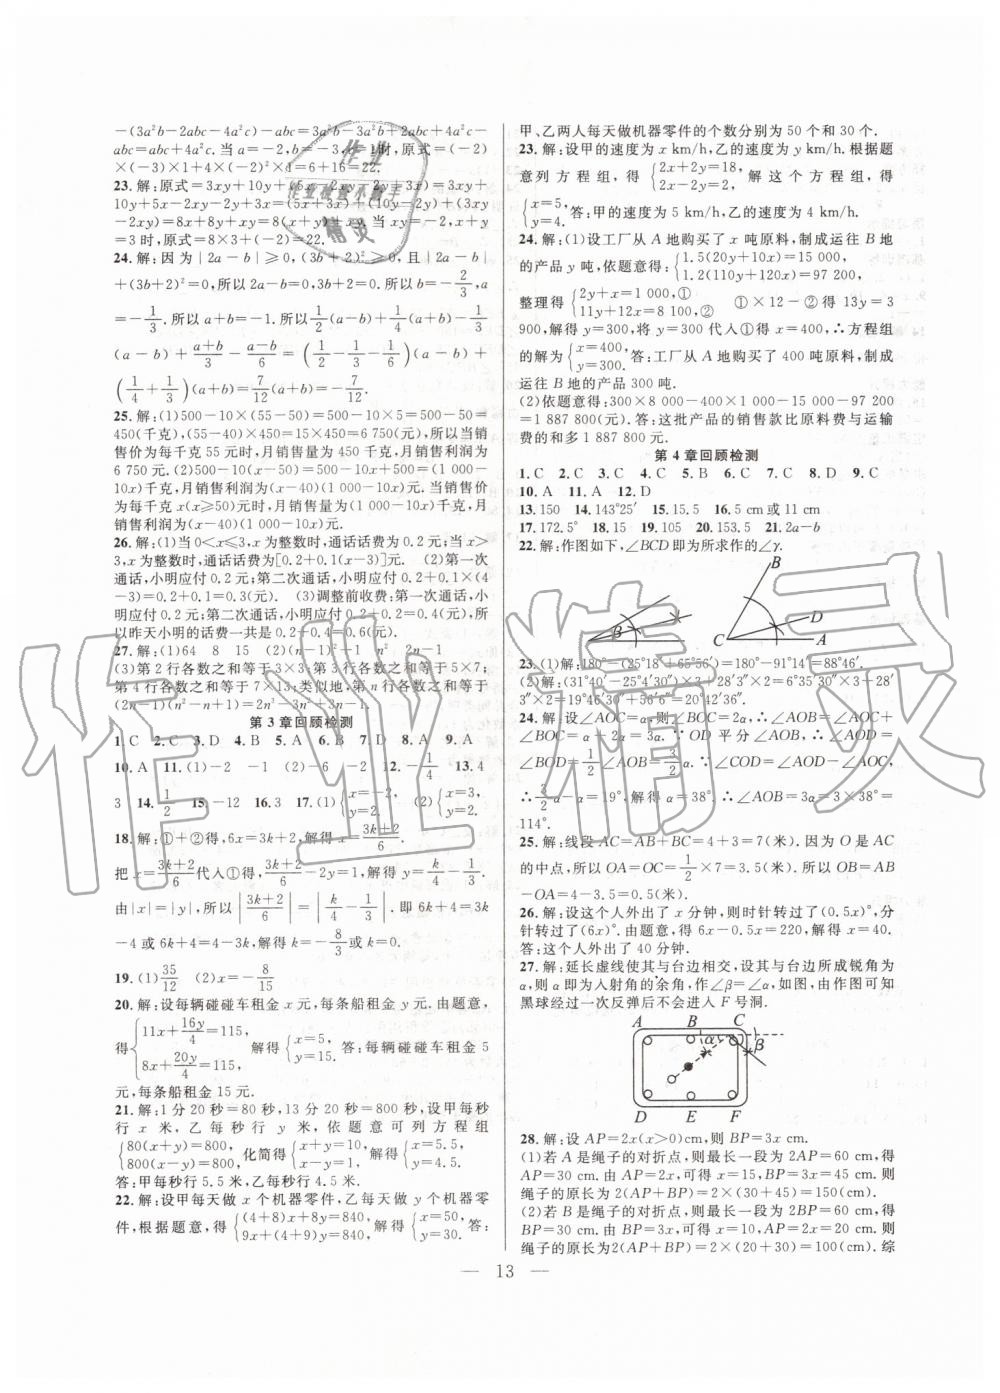 -(3a²b-2abc-4a²c)-abc=3a²b-3a²b+2abc+4a²c-
abc=abc+4a²c. 当 a=-2,b=-3,c=1时,原式=(-
2)×(-3)×1+4×(-2)²×1=6+16=22.
23.解:原式=3xy+10y+(5x-2xy-2y+3x)=3xy+
10y+5x-2xy-2y+3x=(5x+3x)+(10y-2y)+(3xy
-2xy)=8x+8y+xy=8(x+y)+xy. 当xy=-2,x+
y=3时,原式=8×3+(-2)=22.
24.解:因为|2a-b|≥0,(3b+2)²≥0,且|2a-b|
+(3b+2)²=0,所以2a-b=0,3b+2=0.所以b=-2/3,a
=-1/3.所以a+b=-1.所以1/2(a-b)+1/4(a+b)+
1/3(a-b)+(a+b)/3-(a-b)/6=(1/2-1/3-1/6)(a-b)
+(1/4+1/3)(a+b)=7/12(a+b)=-7/12.
25.解:(1)500-10×(55-50)=500-10×5=500-50=
450(千克),(55-40)×450=15×450=6 750(元),所以当销
售价为每千克 55 元时,月销售量为 450 千克,月销售利润为
6 750 元. (2)500-10(x-50)=500-10x+500=(1 000-
10x)千克,月销售利润为(x-40)(1 000-10x)元,当销售价
为每千克 x(x≥50)元时,月销售量为(1 000-10x)千克,月
销售利润为(x-40)(1 000-10x)元.
26.解:(1)当0<x≤3,x为整数时,通话话费为0.2元;当x>
3,x为整数时,通话话费为[0.2+0.1(x-3)]元. (2)第一次
通话,小明应付0.2元;第二次通话,小明应付0.2+0.1×(4-
3)=0.2+0.1=0.3(元). (3)调整前收费:第一次通话,小
明应付0.2元;第二次通话,小明应付0.2+0.2=0.4(元),所
以昨天小明的话费一共是0.2+0.4=0.6(元).
27.解:(1)64 8 15 (2)(n-1)²+1 n² 2n-1
(3)第2行各数之和等于3×3;第3行各数之和等于5×7;
第4行各数之和等于7×13;类似地,第n行各数之和等于
(2n-1)(n²-n+1)=2n³-3n²+3n-1.
第3章回顾检测
1.C 2.C 3.D 4.B 5.A 6.B 7.D 8.A 9.A
10.A 11.(1)-2 -1 (2)-6 -2 12.-1/4 13.4
3 14.1/2 15.-12 16.3 17.(1){x=-2, y=2. (2){x=3, y=2.
18.解:①+②得,6x=3k+2,解得x=(3k+2)/6.
把x=(3k+2)/6代入①得,(3k+2)/6-2y=1,解得y=k/4-1/3.
由|x|=|y|,所以|(3k+2)/6|=|k/4-1/3|.即6k+4=3k
-4或6k+4=4-3k,解得k=-8/3或k=0.
19.(1)35/12 (2)x=-8/15
20.解:设每辆碰碰车租金x元,每条船租金y元.由题意,
得{11x+16y/4=115, 8x+20y/4=115, 解得{x=5, y=15. 答:每辆碰碰车租金5
元,每条船租金15元.
21.解:1分20秒=80秒,13分20秒=800秒,设甲每秒
行 x 米,乙每秒行 y 米,依题意可列方程组
{80(x+y)=800, 800(x-y)=800, 化简得{x+y=10, x-y=1, 解得{x=5.5, y=4.5.
答:甲每秒行5.5米,乙每秒行4.5米.
22.解:设甲每天做 x 个机器零件,乙每天做 y 个机器零
件,根据题意,得{(4+8)x+8y=840, 9x+(4+9)y=840, 解得{x=50, y=30. 答:
甲、乙两人每天做机器零件的个数分别为50个和30个.
23.解:设甲的速度为x km/h,乙的速度为y km/h.根据题
意列方程组,得{2x+2y=18, 2x-2y=2, 解这个方程组,得
{x=5, y=4. 答:甲的速度为5 km/h,乙的速度为4 km/h.
24.解:(1)设工厂从A地购买了x吨原料,制成运往B地
的产品y吨,依题意得:{1.5(20y+10x)=15 000, 1.2(110y+120x)=97 200,
整理得{2y+x=1 000,① 11y+12x=8 100,② ①×12-②得 13y=3
900,解得y=300,将y=300代入①得x=400,∴方程组
的解为{x=400, y=300. 答:工厂从A地购买了400吨原料,制成
运往B地的产品300吨.
(2)依题意得:300×8 000-400×1 000-15 000-97 200
=1 887 800(元).答:这批产品的销售款比原料费与运输
费的和多1 887 800元.
第4章回顾检测
1.C 2.C 3.C 4.C 5.B 6.C 7.C 8.D 9.C
10.A 11.A 12.D
13.150 14.143°25′ 15.15.5 16.5 cm或11 cm
17.172.5° 18.15 19.105 20.153.5 21.2a-b
22.解:作图如下,∠BCD即为所求作的∠γ.
B
β
D
C A
23.(1)解:180°-(25°18′+65°56′)=180°-91°14′=88°46′.
(2)解:(31°40′-25°4′30″)×3+56′=6°35′30″×3+56′
=19°46′30″+56′=20°42′30″.
24.解:设∠AOC=α,则∠BOC=2α,∴∠AOB=∠AOC+
∠BOC=α+2α=3α.∵OD平分∠AOB,∴∠AOD=
1/2∠AOB=3/2α.∵∠COD=∠AOD-∠AOC,
∴3/2α-α=19°,解得α=38°.∴∠AOB=3α=3×38°=
114°.
25.解:线段AC=AB+BC=4+3=7(米).因为O是AC
的中点,所以OA=OC=1/2×7=3.5(米).所以OB=AB
-OA=4-3.5=0.5(米).
26.解:设这个人外出了x分钟,则时针转过了(0.5x)°,分
针转过了(6x)°.由题意,得6x-0.5x=220,解得x=40.
答:这个人外出了40分钟.
27.解:延长虚线使其与台边相交,设其与台边所成锐角为
α,则α即为入射角的余角,作∠β=∠α,如图,由作图可知
黑球经过一次反弹后不会进入F号洞.
A B C
α β
D E F
28.解:设AP=2x(x>0)cm,则BP=3x cm.
(1)若A是绳子的对折点,则最长一段为2AP=60 cm,得
AP=30 cm.由AP=2x,可得x=15,BP=3x=45 cm,则
绳子的原长为2(AP+BP)=2×(30+45)=150(cm).
(2)若B是绳子的对折点,则最长一段为2BP=60 cm,得
BP=30 cm.由BP=3x,可得x=10,AP=2x=20 cm,则
绳子的原长为2(AP+BP)=2×(20+30)=100(cm).综
— 13 —
作业精灵